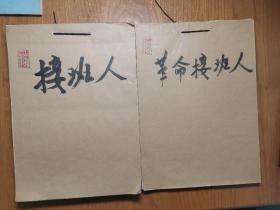 接班人
革命接班人